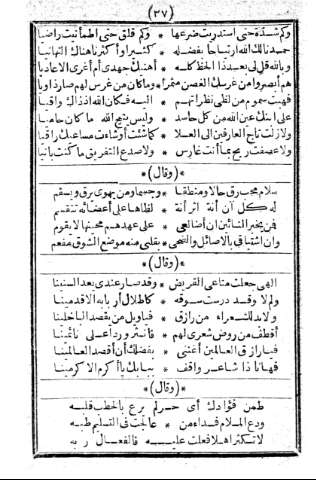 (٢٧)
وكم شدة حتى استدرت ضرعها * وكم قلق حتى اطمأنيت راضيا
حميد نالك الله ارتياحا بفضله * كثيرا وأكثرنا هناك التهانيا
وبالله قل لي بعيد هذا الحظ كله * أهنيك جهدي أم أعزي الاعاديا
هم أبصروا من غرسك الغصن مثمرا * وما كان من غرس لهم صار ذاويا
فهبت سموم من لظى نظراتهم * اليه فكان الله اذ ذاك واقيا
على انك عين الله من كل حاسد * وليس يتيح الله ما كان حاميا
ولا زلت تاج العارفين الى العلا * كما شئت أو شاءت مساعيك راقيا
ولا عصفت ريح بما أنت غارس * ولا صدع التفريق ما كنت بانيا
*(وقال)*
سلام محب رق حالا ومنطقا * وجسما ومن يهوى يرق ويسقم
له كل آن أنة اثر أنة * لظاها على أعضائه تتقسم
فمن يخبر النائين ان أضالعي * على عهدهم محنيها لا يقوم
وان اشتياقي بالاصائل والضحى * بقلبي منه موضع الشوق مفعم
*(وقال)*
الهي جعلت متاعي القريض * وقد صار عندي بعد السنينا
ولم لا وقد درست سوقه * كاطلال أربابه الاقدمينا
ولا بد للشعراء من رازق * فيا ويل من يقصد الباخلينا
أقطف من روض شعري لهم * فانثر وردا على نائمينا
فيا رازق العالمين أغنني * بفضلك أن أقصد العالمينا
فها أنا ذا شاعر واقف * ببابك يا أكرم الاكرمينا
*(وقال)*
طمن فؤادك أي حر لم يرع بالخطب قلبه
ودع الملام فداء من * عالجت في التسليم طبه
لا تكثر اهلا فعلت عليه فالفعال ربه